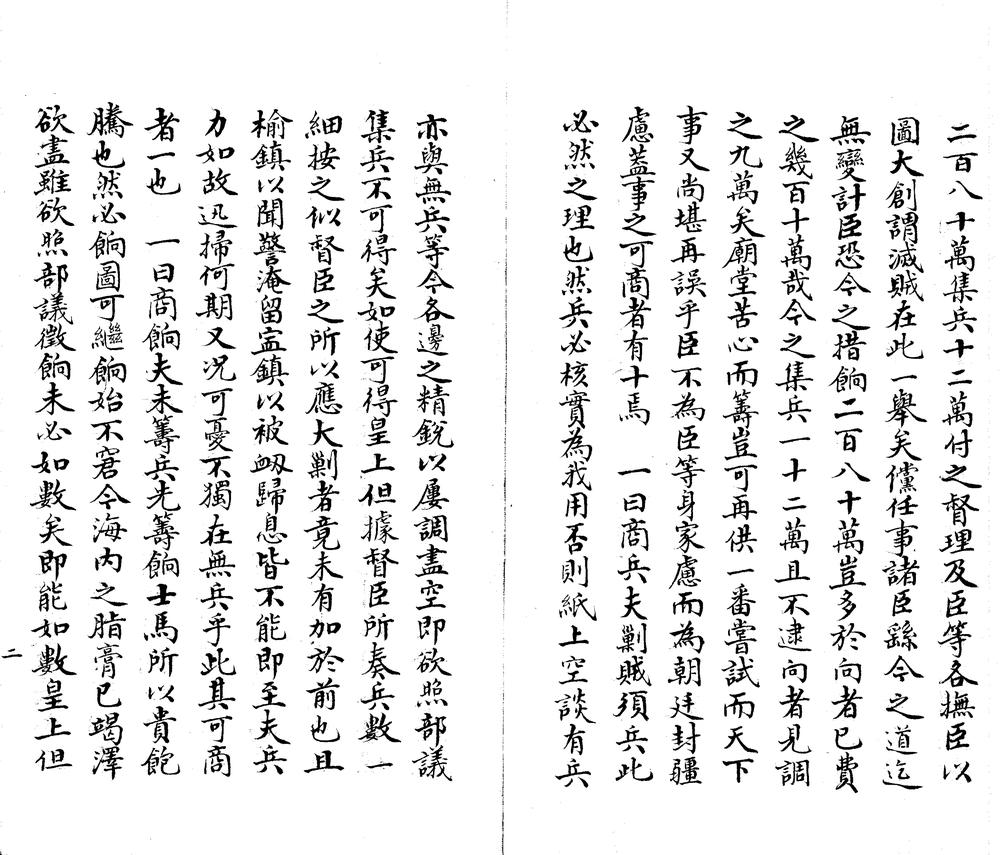 二百八十萬集兵十二萬付之督理及臣等各撫臣以
圖大創謂滅賊在此一舉矣儻任事諸臣繇今之道迄
無變計臣恐今之措餉二百八十萬豈多於向者已費
之幾百十萬哉今之集兵一十二萬且不逮向者見調
之九萬矣廟堂苦心而籌豈可再供一番嘗試而天下
事又尚堪再誤乎臣不為臣等身家慮而為朝廷封疆
慮蓋事之可商者有十焉　一曰商兵夫剿賊須兵此
必然之理也然兵必核實為我用否則紙上空談有兵
亦與無兵等今各邊之精銳以屢調盡空即欲照部議
集兵不可得矣如使可得皇上但據督臣所奏兵數一
細按之似督臣之所以應大剿者竟未有加於前也且
榆鎮以聞警淹留寍鎮以被衂歸息皆不能即至夫兵
力如故迅掃何期又況可憂不獨在無兵乎此其可商
者一也　一曰商餉夫未籌兵先籌餉士馬所以貴飽
騰也然必餉圖可繼餉始不窘今海內之脂膏已竭澤
欲盡雖欲照部議徵餉未必如數矣即能如數皇上但
二